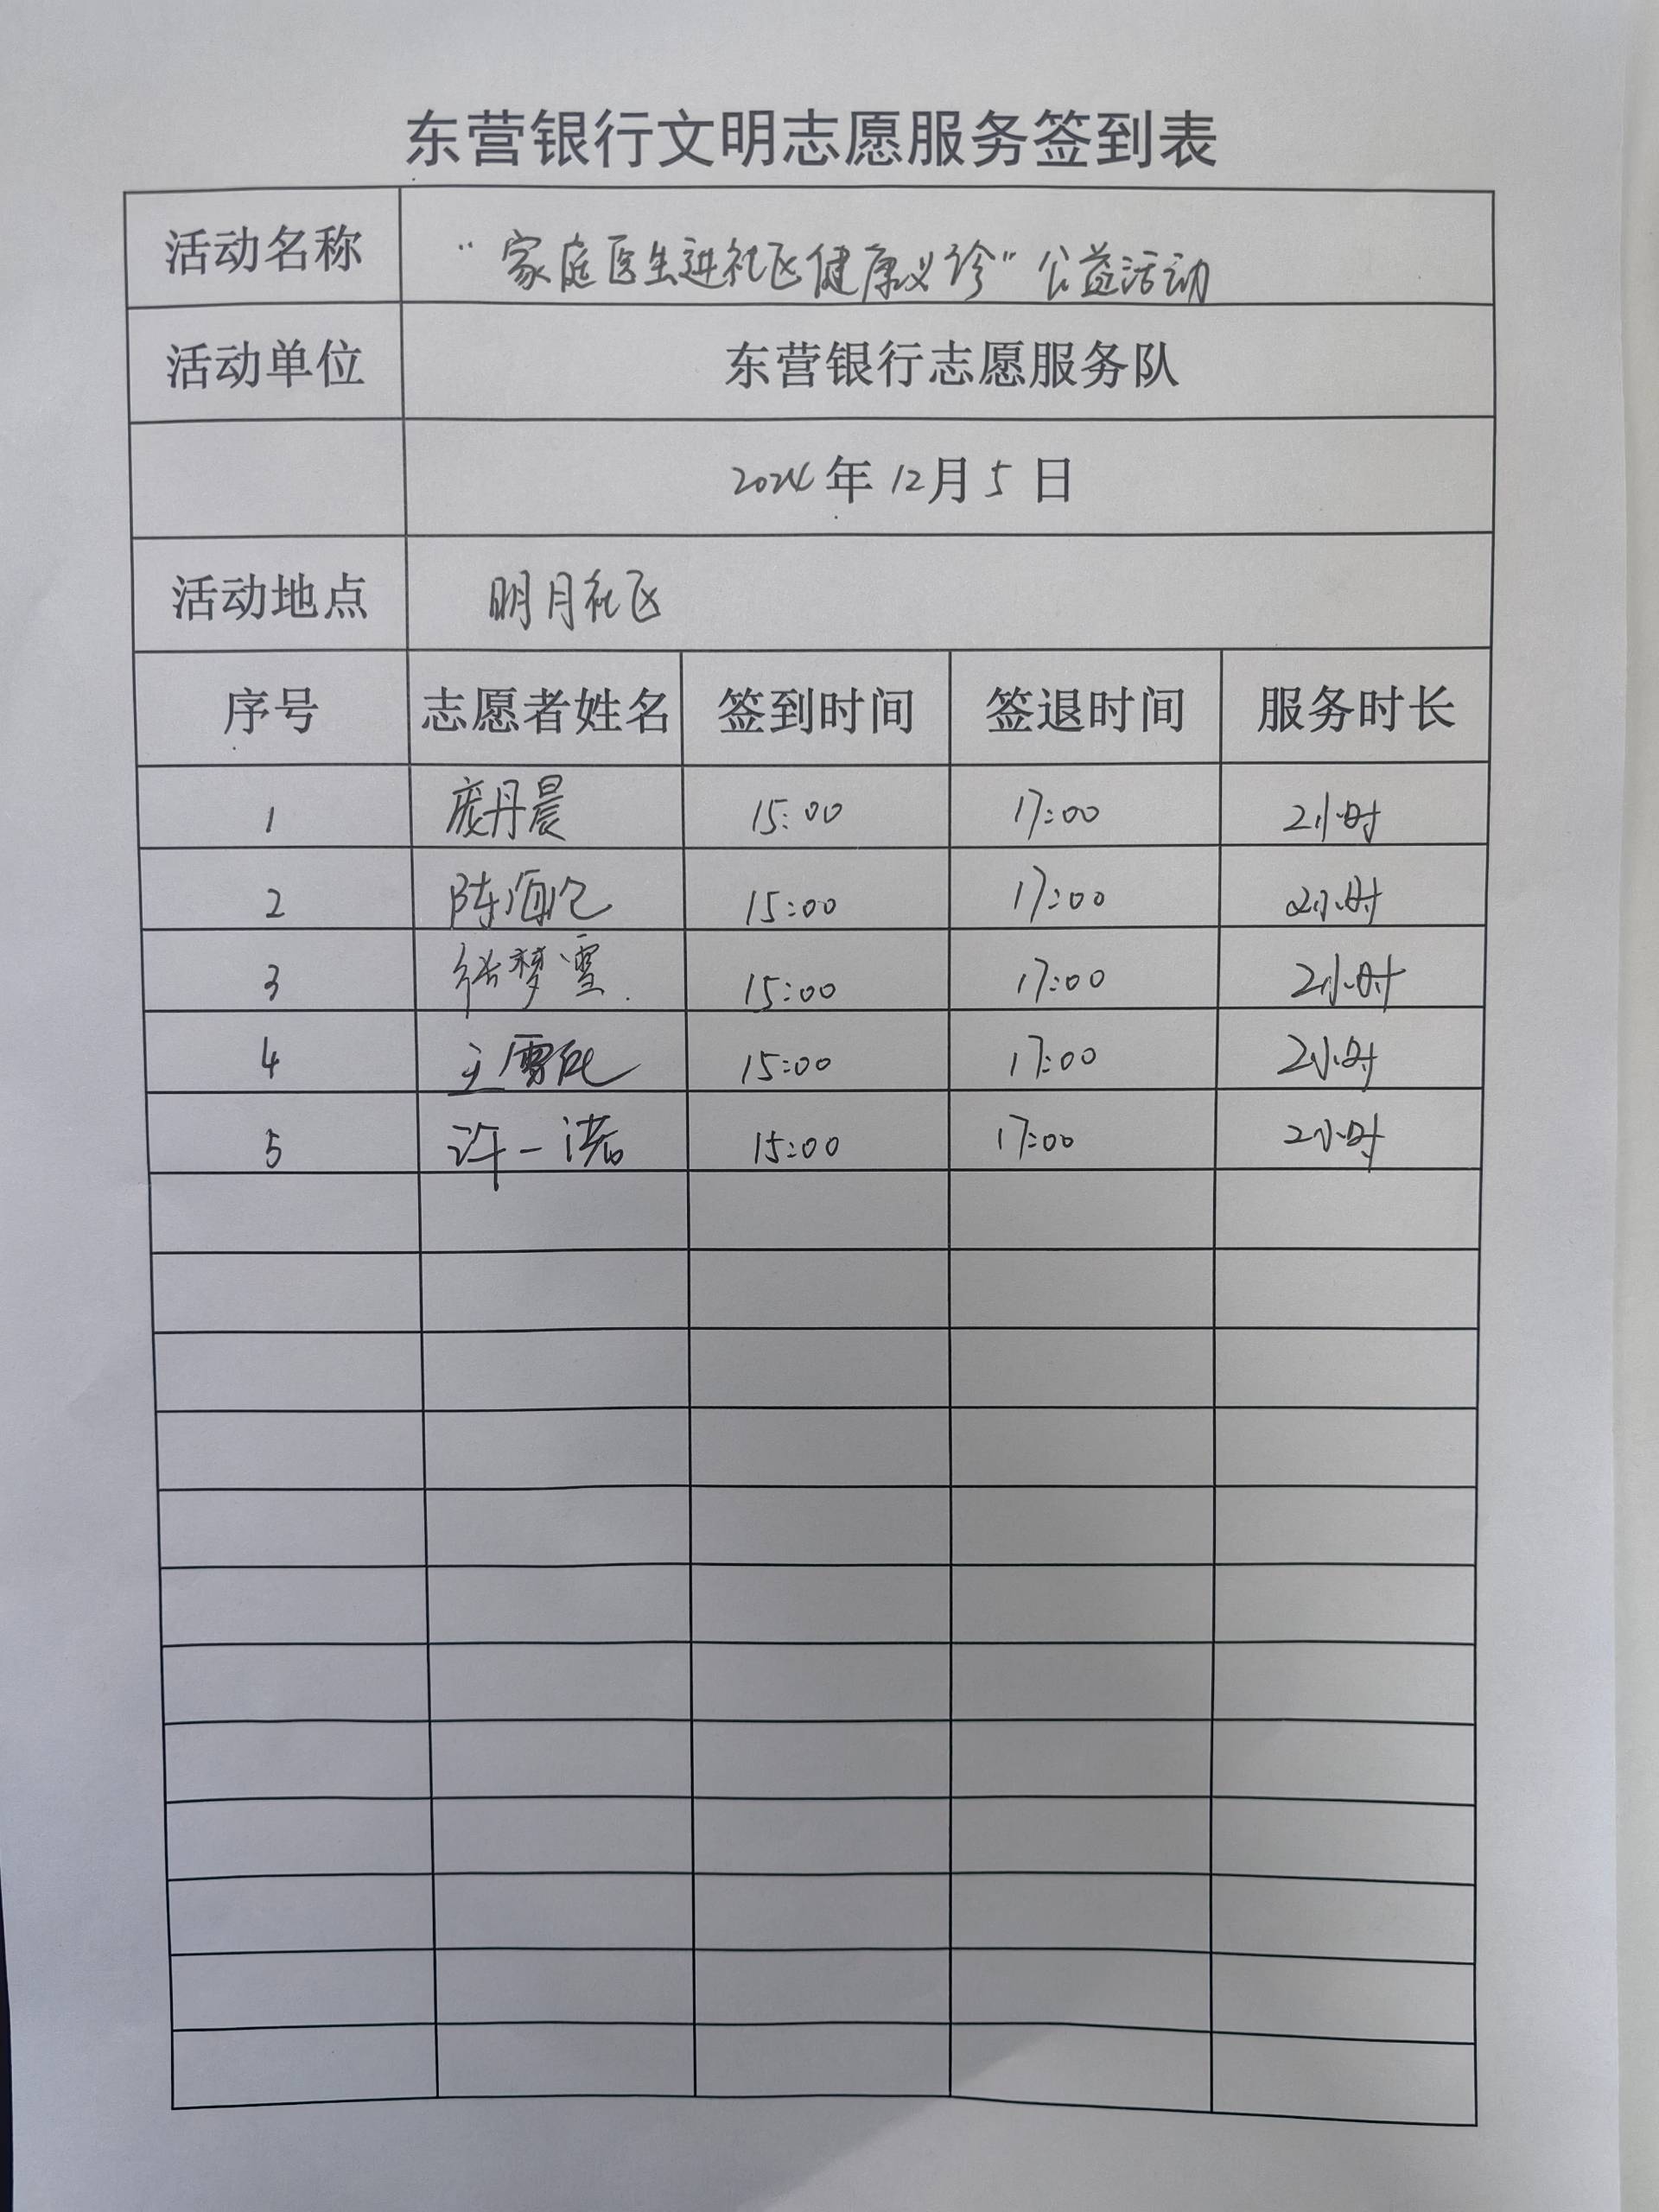 东营银行文明志愿服务签到表
活动名称 “家庭医生进社区健康义诊”公益活动
活动单位 东营银行志愿服务队
2024年12月5日
活动地点 明月社区
序号 志愿者姓名 签到时间 签退时间 服务时长
1 庞丹晨 15:00 17:00 2小时
2 陈 15:00 17:00 2小时
3 张梦雪 15:00 17:00 2小时
4 王 15:00 17:00 2小时
5 许一诺 15:00 17:00 2小时